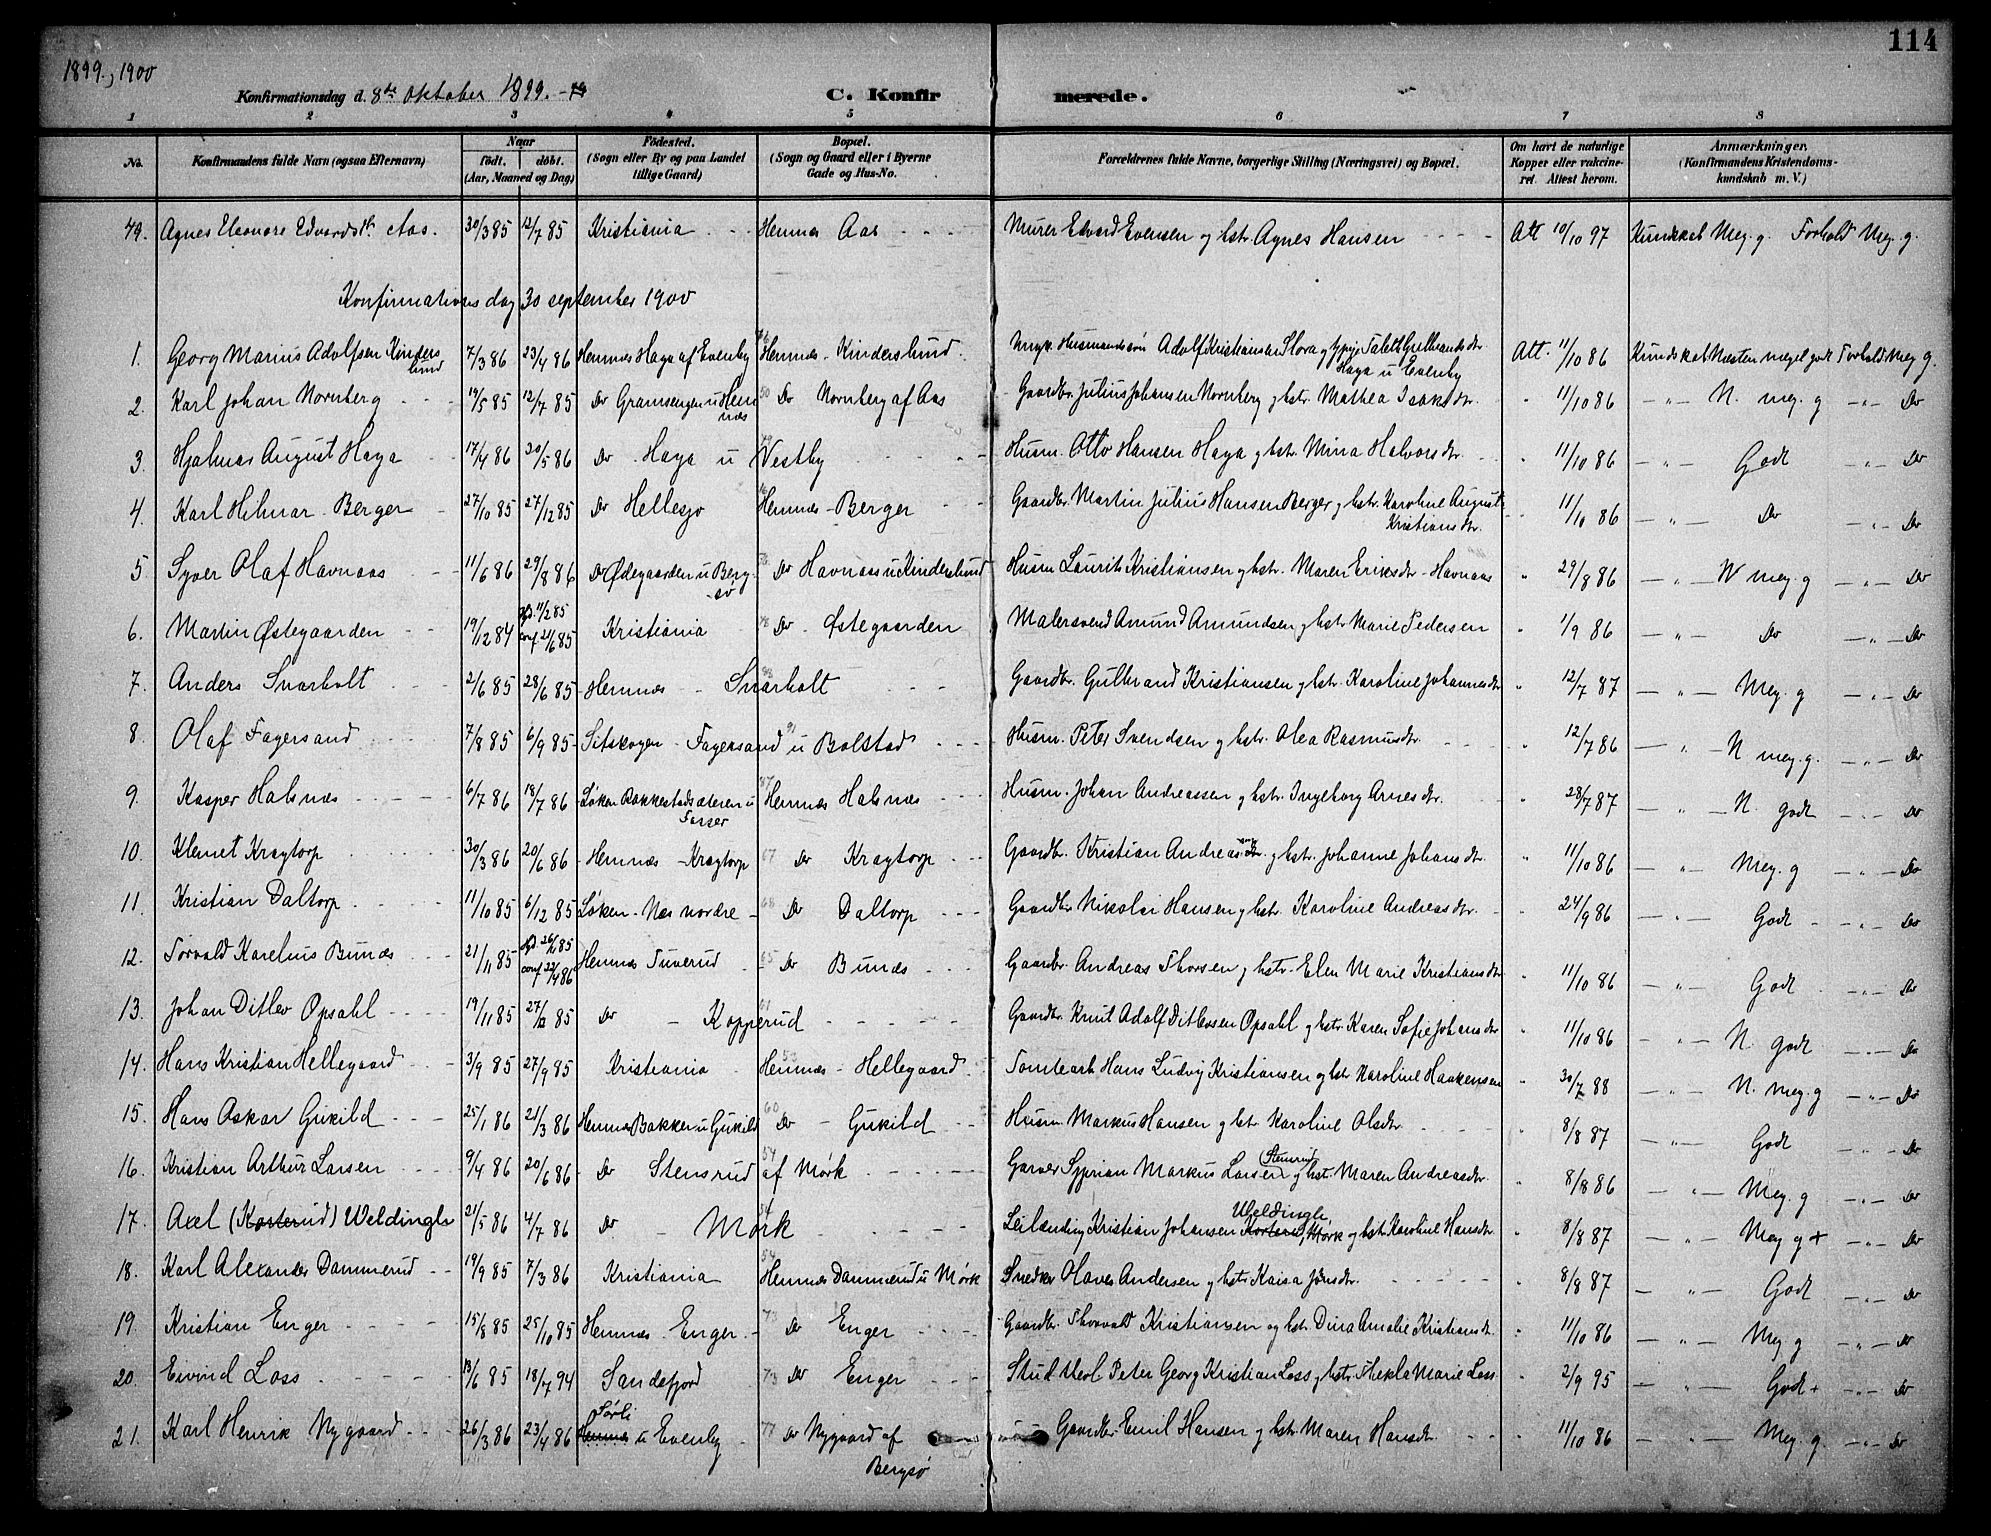 114
1899, 1900
Konfirmationsdag d. 8de Oktober 1899. C. Konfirmerede.
1 2 3 4 5 6 7 8
No. Konfirmandens fulde Navn (ogsaa Efternavn) Naar født. døbt. (Aar, Maaned og Dag) Fødested. (Sogn eller By og paa Landet tillige Gaard) Bopæl. (Sogn og Gaard eller i Byerne Gade og Hus-No. Forældrenes fulde Navne, borgerlige Stilling (Næringsvei) og Bopæl. Om havt de naturlige Kopper eller vakcineret. Attest herom. Anmærkninger. (Konfirmandens Kristendomskundskab m. V.)
49. Agnes Eleonore Edvardsdtr. Aas. 30/3 85 12/7 85 Kristiania Hemnæs Aas Murer Edvard Evensen og hstr. Agnes Hansen Att 10/10 97 Kundskab Meg. g. Forhold Meg. g.
Konfirmationsdag 30 september 1900
1. Georg Marius Adolfsen Kinderslund 7/3 86 23/4 86 Hemnæs Haga af Evenby Hemnæs - Kinderslund. Ungk. Husmandssøn Adolf Kristiansen Slora og pige Gulbrandsdtr. Haga u Evenby Att. 11/10 86 Kundskab Næsten meget godt Forhold Meg g.
2. Karl Johan Nornberg 19/5 85 12/7 85 Do Gramsengen u Hemnæs 50 Do Nornberg af Aas Gaardbr. Julius Johansen Nornberg og hstr. Mathea Isaksdtr. " 11/10 86 - " - N. meg. g - " - Do
3. Hjalmar August Haga 17/4 86 30/5 86 Do Haga u Vestby Husm. Otto Hansen Haga og hstr. Mina Halvorsdtr. " 11/10 86 - " - Godt - " - Do
4. Karl Hilmar Berger 27/10 85 27/12 85 Do Hellesjø Hemnæs - Berger Gaardbr. Martin Julius Hansen Berger og hstr. Karoline Auguste Kristiansdtr. " 11/10 86 - " - Do - " - Do
5 Syver Olaf Havnaas 11/6 86 29/8 86 Do Ødegaarden u Bergsø Do Havnaas u Kinderslund Husm Laurits Kristiansen og hstr. Maren Eriksdtr - Havnaas " 29/8 86 - " - N meg. g - " - Do
6. Martin Østegaarden 19/12 84 11/2 85 conf 21/6 85 Kristiania Do - Østegaarden Malersvend Amund Amundsen og hstr. Marie Pedersen " 1/9 86 - " - Do - " - Do
7. Anders Snarholt 2/6 85 28/6 85 Hemnæs - Snarholt Gaardbr. Gulbrand Kristiansen og hstr. Karoline Johannesdtr " 12/7 87 - " - Meg. g - " - Do
8. Olaf Fagersand 7/8 85 6/9 85 Sitskogen - Fagersand u Bolstad 91 Husm. Peter Svendsen og hstr. Olea Rasmusdtr " 12/7 86 - " - N meg. g. - " - Do
9. Kasper Halsnæs 6/7 86 18/7 86 Løken Bakkestadsæteren u Fosser 87 Hemnæs Halsnæs Husm. Johan Andreassen og hstr. Ingeborg Arnesdtr. " 28/7 87 - " - N. godt - " - Do
10. Klemet Kragtorp 30/3 86 20/6 86 Hemnæs - Kragtorp 67 Do Kragtorp Gaardbr. Kristian Andreassen og hstr. Johanne Johansdtr. " 11/10 86 - " - Meg. g - " - Do
11. Kristian Daltorp 11/10 85 6/12 85 Løken - Næs nordre 68 Do Daltorp Gaardbr Nikolai Hansen og hstr. Karoline Andreasdtr. " 24/9 86 - " - Godt - " - Do
12. Torvald Karelius Bunæs 21/11 85 26/11 85 conf 22/4 86 Hemnæs Tuverud 65 Do Bunæs Gaardbr. Andreas Thorsen og hstr. Elen Marie Kristiansdtr " 11/10 86 - " - Godt - " - Do
13. Johan Ditlev Opsahl 19/11 85 27/12 85 Do - Kopperud Gaardbr. Knut Adolf Ditlevsen Opsahl og hstr. Karen Sofie Johansdtr " 11/10 86 - " - N. godt - " - Do
14. Hans Kristian Hellegaard 3/9 85 27/9 85 Kristiania 53 Hemnæs - Hellegaard Tomtearb Hans Ludvig Kristiansen og hstr Karoline Haakensen " 30/7 88 - " - N. meg. g - " - Do
15. Hans Oskar Gukild 25/1 86 21/3 86 Hemnæs Bakker u Gukild 60 Do - Gukild Husm Markus Hansen og hstr. Karoline Olsdtr. " 8/8 87 - " - Godt - " - Do
16. Kristian Arthur Larsen 9/4 86 20/6 86 Do Stensrud af Mørk 54 Garver Syprian Markus Larsen (Stensrud) og hst. Maren Andreasdtr. " 8/8 86 - " - Meg. g - " - Do
17. Axel (Kosterud) Weldingh 21/5 86 4/7 86 Do - Mørk Leilænding Kristian Johansen Weldingh, Mørk og hstr. Karoline Hansdtr " 8/8 87 - " - Meg g + - " - Do
18. Karl Alexander Dammerud 19/9 85 7/3 86 Kristiania 54 Hemnæs Dammerud u Mørk Snedker Olaves Andersen og hstr Kaisa Jonsdtr. " 8/8 87 - " - Godt - " - Do
19. Kristian Enger 15/8 85 25/10 85 Hemnæs - Enger - 73 Do Enger Gaardbr. Thorvald Kristiansen og hstr. Dina Amalie Kristiansdtr. " 11/10 86 - " - Meg g - " - Do
20. Eivind Loss 13/6 85 18/7 94 Sandefjord 73 Do Enger Stud theol Peter Georg Kristian Loss og hstr. Thekla Marie Loss " 2/9 95 - " - Godt + - " - Do
21. Karl Henrik Nygaard 26/3 86 23/4 86 Sørli Hemnæs u Evenby 77 Do Nygaard af Bergsø Gaardbr. Emil Hansen og hstr. Maren Hansdtr. " 11/10 86 - " - Meg. g. - " - Do